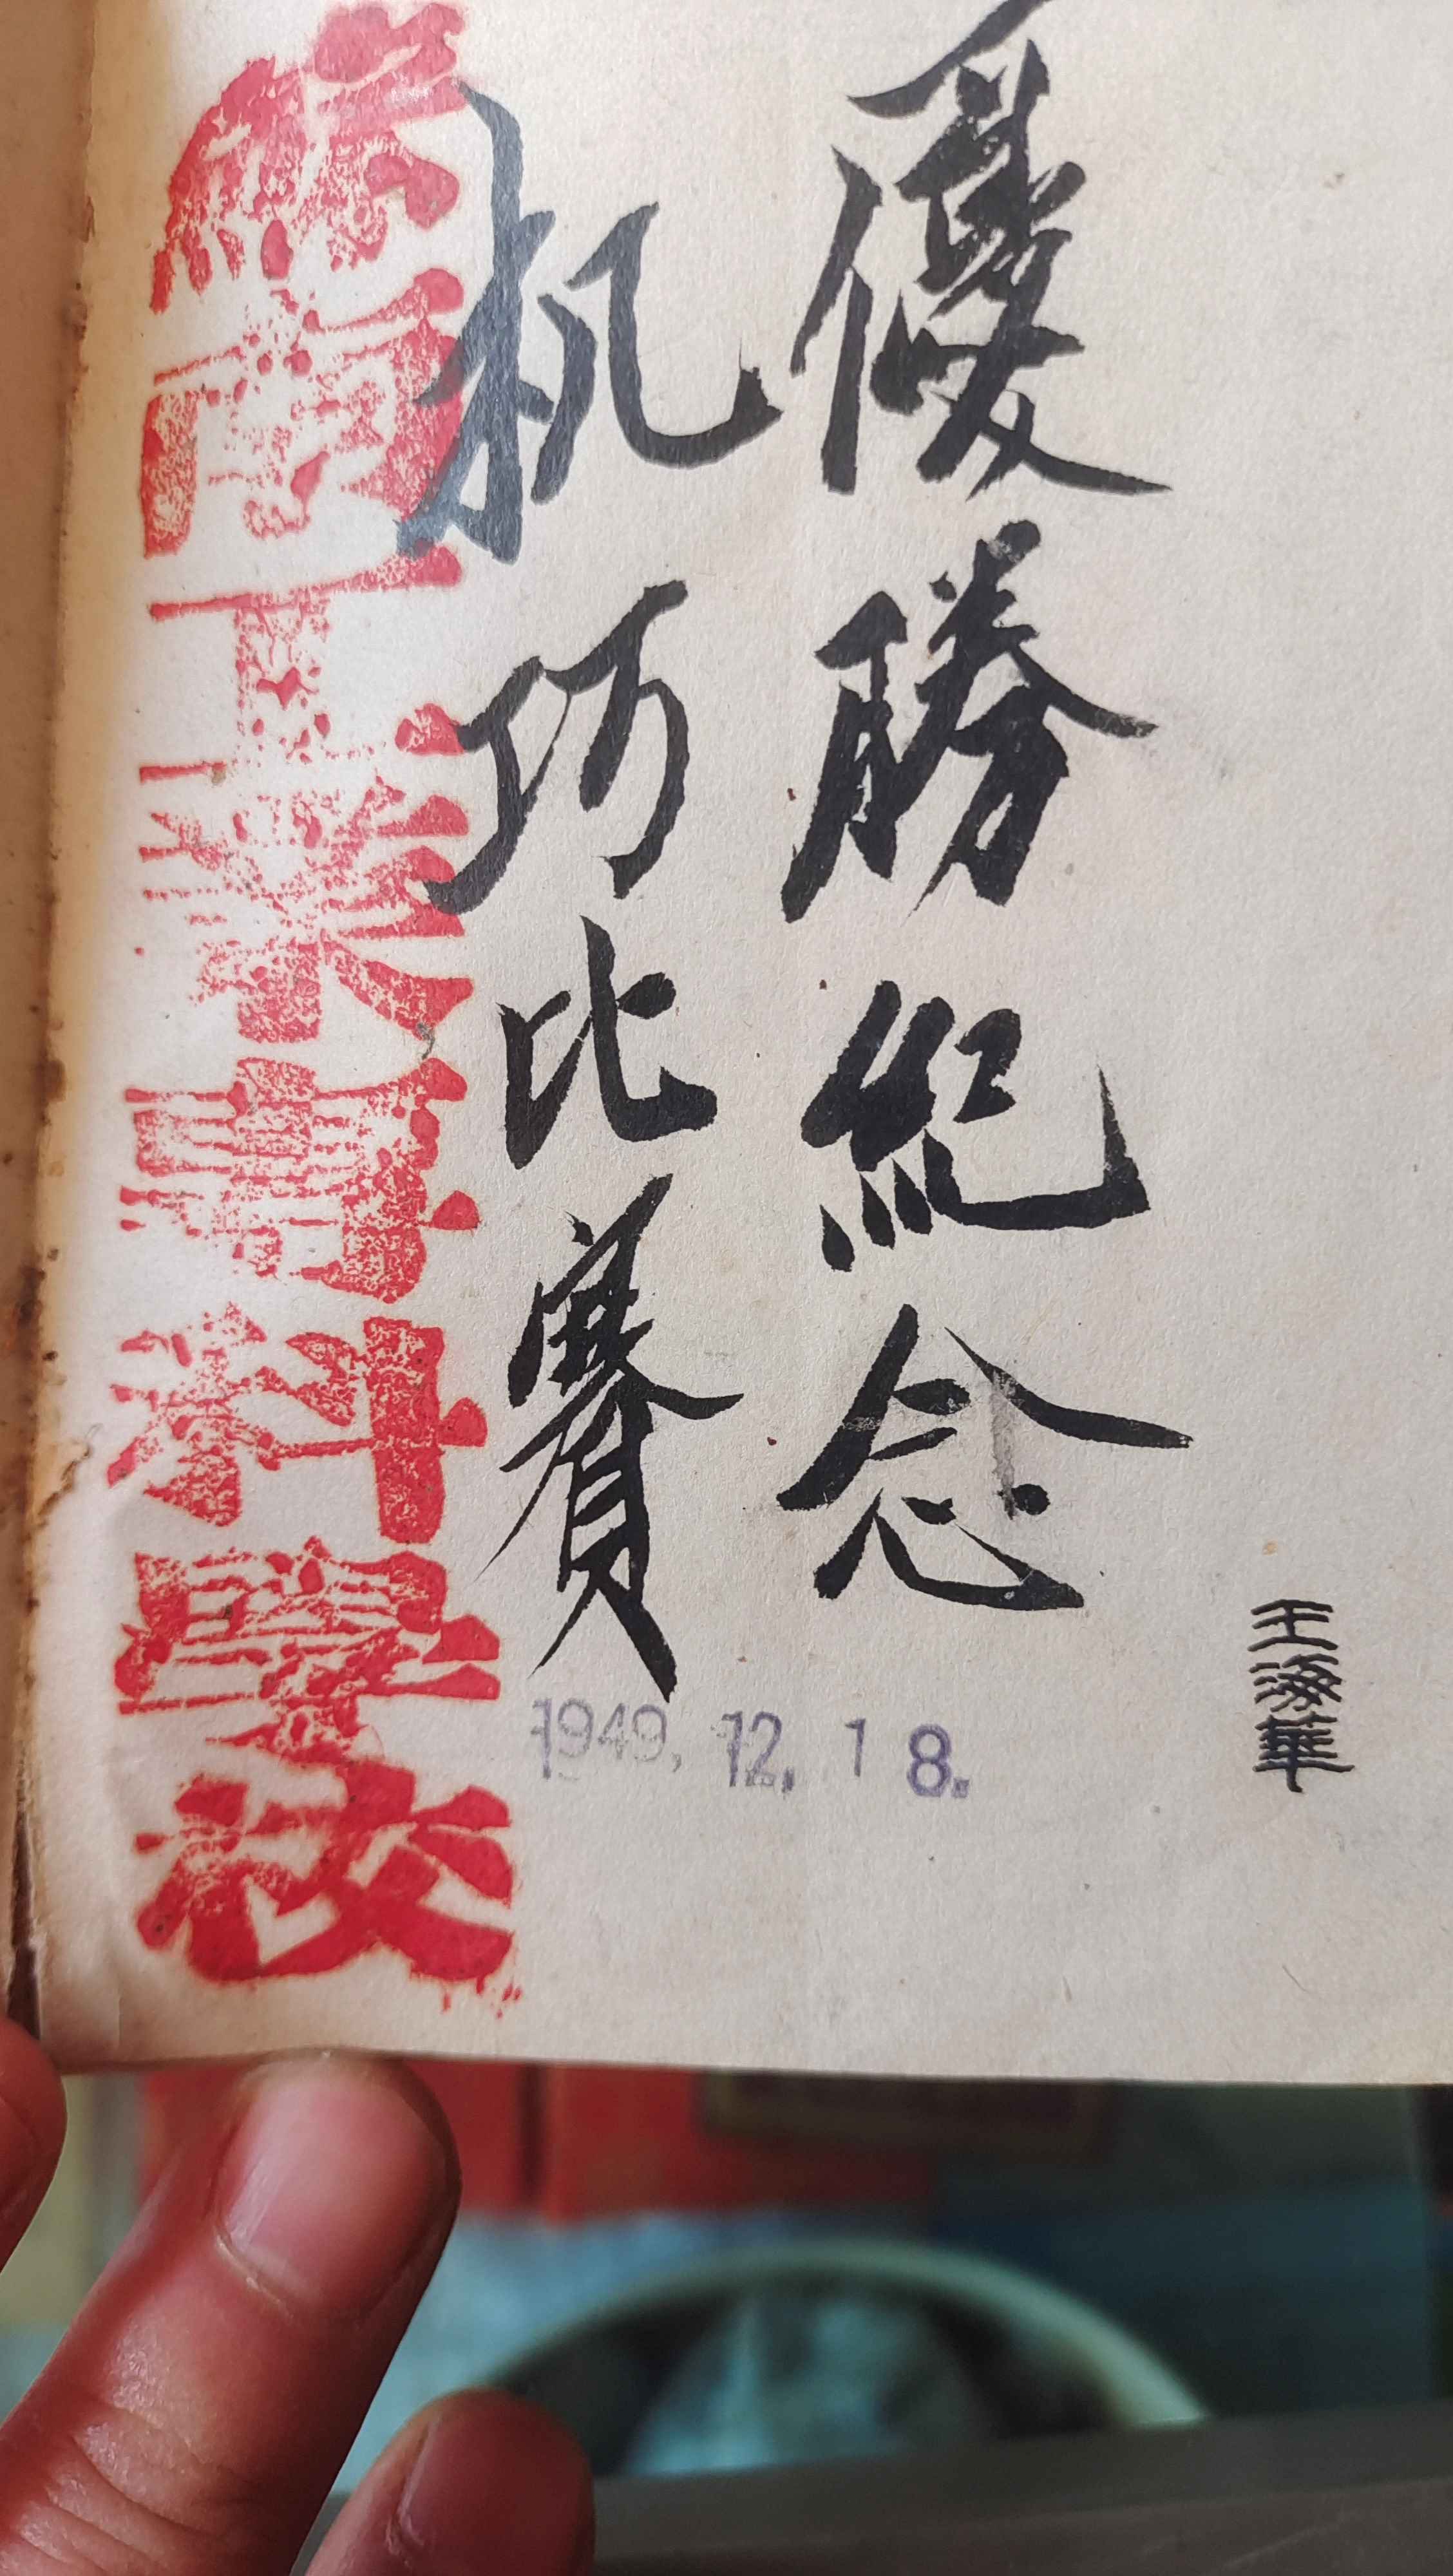 王海華
優勝紀念
机巧比賽
1949.12.18.
蘇南工業專科學校